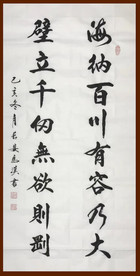 海納百川有容乃大
壁立千仞無欲則剛
己亥冬月
書